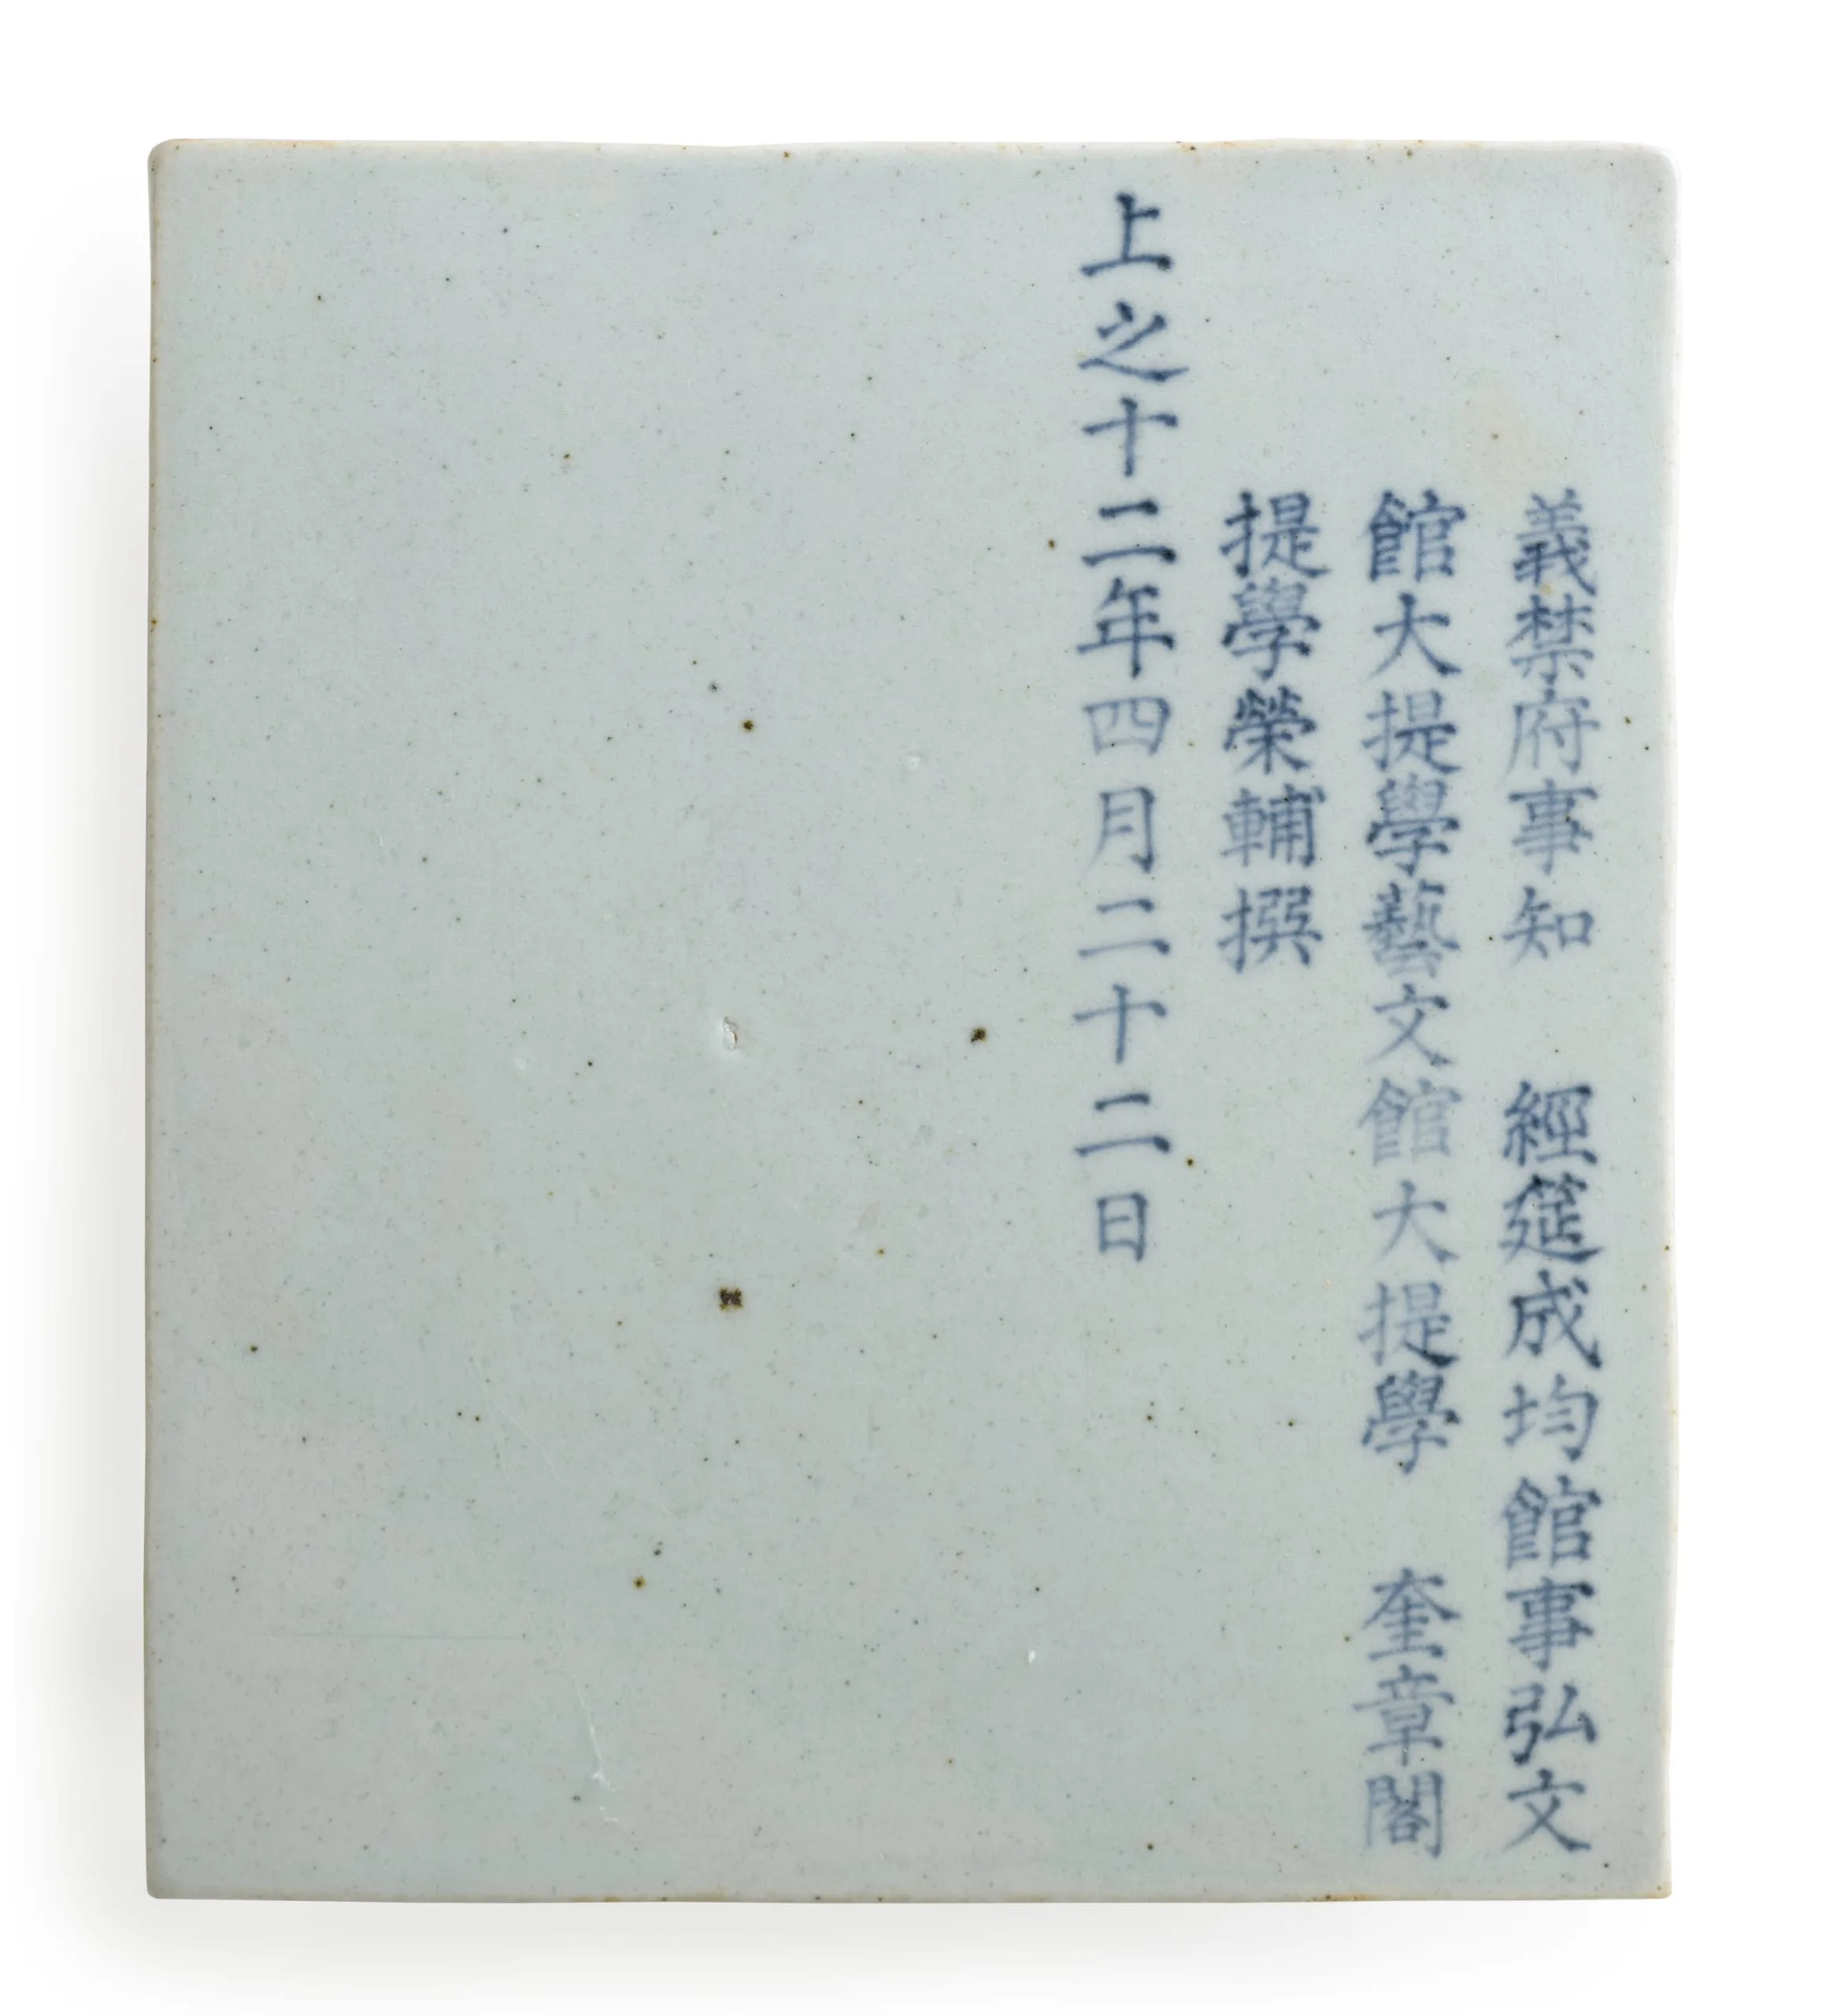 義禁府事知 經筵成均館事弘文
館大提學藝文館大提學 奎章閣
提學榮輔撰
上之十二年四月二十二日